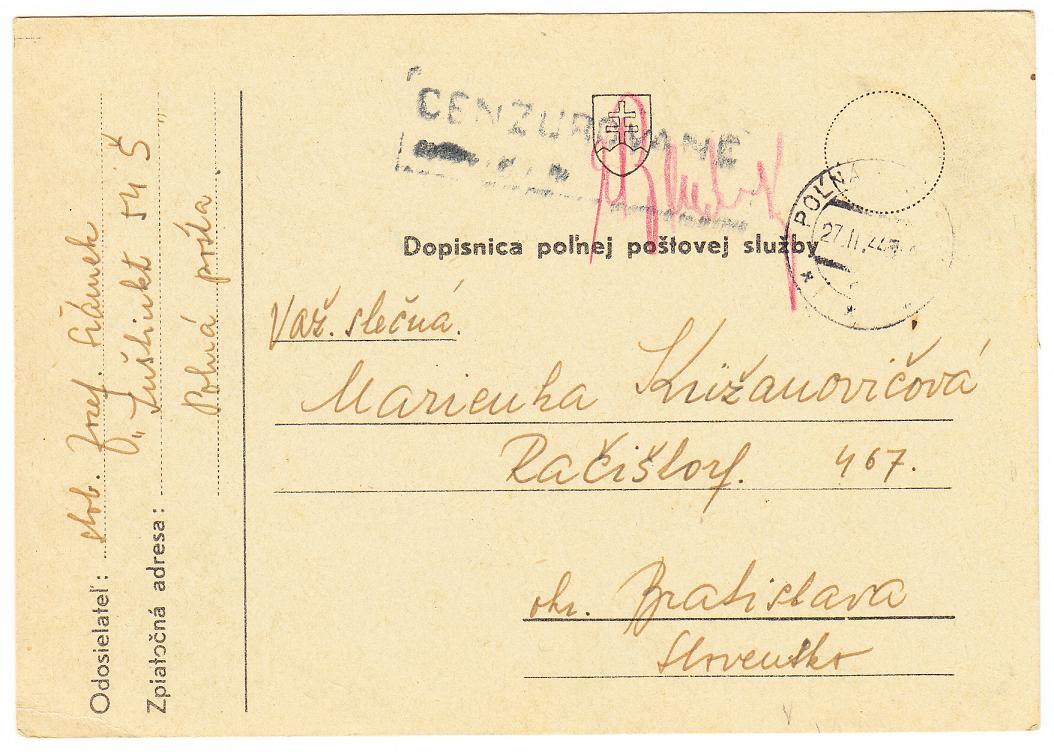 CENZUROVANÉ
Dopisnica poľnej poštovej služby
POĽNÁ
27.II.44
Váž. slečná.
Marienka Križanovičová
Račištorf. 467.
okr. Bratislava
Slovensko
Odosielateľ: slob. Jozef
Zpiatočná adresa:
Poľná pošta